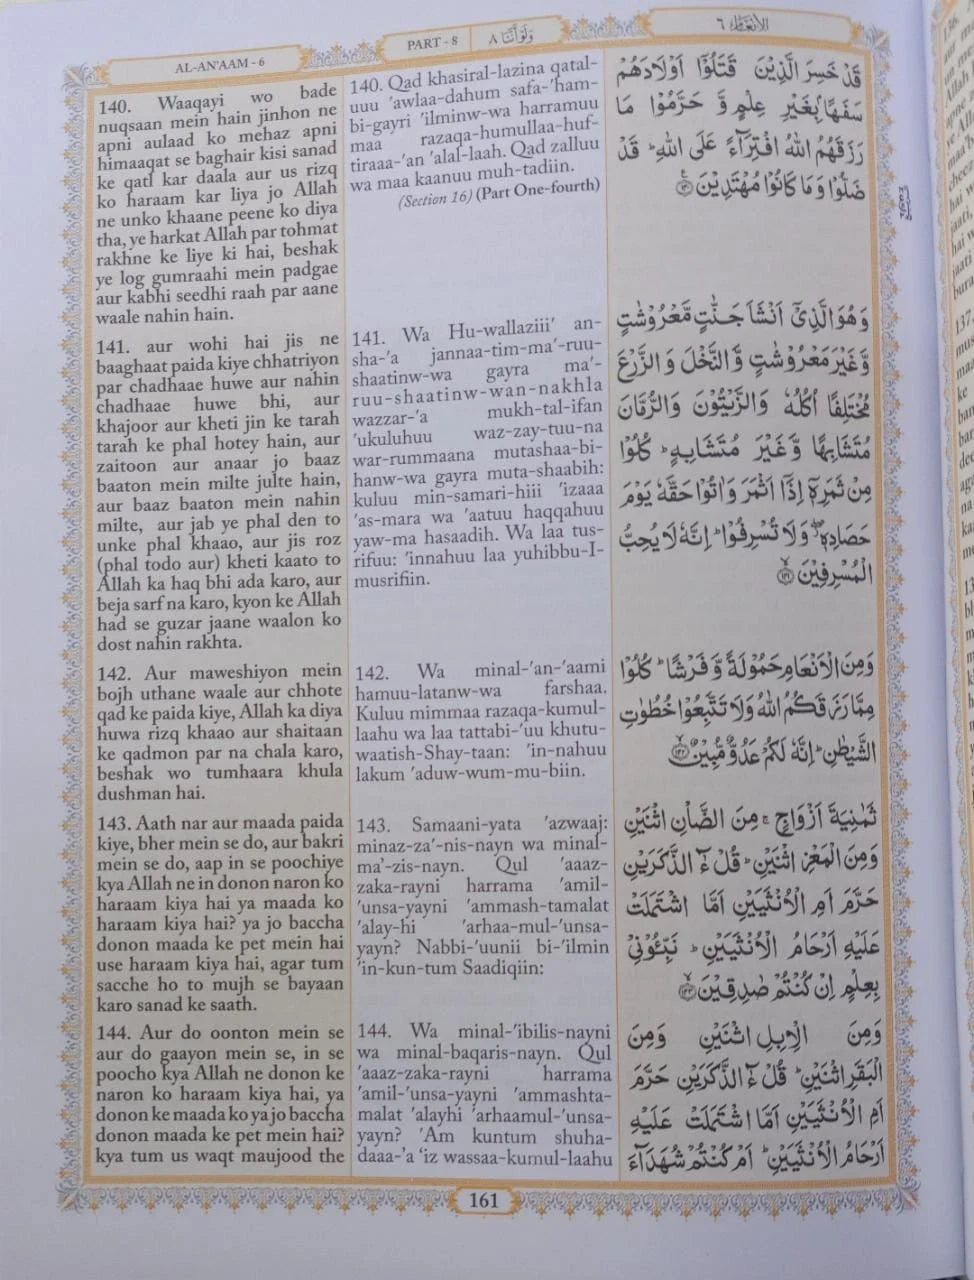 AL-AN'AAM - 6
PART - 8
وَلَوْ اَنَّنَا ٨
الْاَنْعَام ٦
140. Waaqayi wo bade
nuqsaan mein hain jinhon ne
apni aulaad ko mehaz apni
himaaqat se baghair kisi sanad
ke qatl kar daala aur us rizq
ko haraam kar liya jo Allah
ne unko khaane peene ko diya
tha, ye harkat Allah par tohmat
rakhne ke liye ki hai, beshak
ye log gumraahi mein padgae
aur kabhi seedhi raah par aane
waale nahin hain.
141. aur wohi hai jis ne
baaghaat paida kiye chhatriyon
par chadhaae huwe aur nahin
chadhaae huwe bhi, aur
khajoor aur kheti jin ke tarah
tarah ke phal hotey hain, aur
zaitoon aur anaar jo baaz
baaton mein milte julte hain,
aur baaz baaton mein nahin
milte, aur jab ye phal den to
unke phal khaao, aur jis roz
(phal todo aur) kheti kaato to
Allah ka haq bhi ada karo, aur
beja sarf na karo, kyon ke Allah
had se guzar jaane waalon ko
dost nahin rakhta.
142. Aur maweshiyon mein
bojh uthane waale aur chhote
qad ke paida kiye, Allah ka diya
huwa rizq khaao aur shaitaan
ke qadmon par na chala karo,
beshak wo tumhaara khula
dushman hai.
143. Aath nar aur maada paida
kiye, bher mein se do, aur bakri
mein se do, aap in se poochiye
kya Allah ne in donon naron ko
haraam kiya hai ya maada ko
haraam kiya hai? ya jo baccha
donon maada ke pet mein hai
use haraam kiya hai, agar tum
sacche ho to mujh se bayaan
karo sanad ke saath.
144. Aur do oonton mein se
aur do gaayon mein se, in se
poocho kya Allah ne donon ke
naron ko haraam kiya hai, ya
donon ke maada ko ya jo baccha
donon maada ke pet mein hai?
kya tum us waqt maujood the
140. Qad khasiral-lazina qatal-
uuu 'awlaa-dahum safa-'ham-
bi-gayri 'ilminw-wa harramuu
maa razaqa-humullaa-huf-
tiraaa-'an 'alal-laah. Qad zalluu
wa maa kaanuu muh-tadiin.
(Section 16) (Part One-fourth)
141. Wa Hu-wallaziii' an-
sha-'a jannaa-tim-ma'-ruu-
shaatinw-wa gayra ma'-
ruu-shaatinw-wan-nakhla
wazzar-'a mukh-tal-ifan
'ukuluhuu waz-zay-tuu-na
war-rummaana mutashaa-bi-
hanw-wa gayra muta-shaabih:
kuluu min-samari-hiii 'izaaa
'as-mara wa 'aatuu haqqahuu
yaw-ma hasaadih. Wa laa tus-
rifuu: 'innahuu laa yuhibbu-I-
musrifiin.
142. Wa minal-'an-'aami
hamuu-latanw-wa farshaa.
Kuluu mimmaa razaqa-kumul-
laahu wa laa tattabi-'uu khutu-
waatish-Shay-taan: 'in-nahuu
lakum 'aduw-wum-mu-biin.
143. Samaani-yata 'azwaaj:
minaz-za'-nis-nayn wa minal-
ma'-zis-nayn. Qul 'aaaz-
zaka-rayni harrama 'amil-
'unsa-yayni 'ammash-tamalat
'alay-hi 'arhaa-mul-'unsa-
yayn? Nabbi-'uunii bi-'ilmin
'in-kun-tum Saadiqiin:
144. Wa minal-'ibilis-nayni
wa minal-baqaris-nayn. Qul
'aaaz-zaka-rayni harrama
'amil-'unsa-yayni 'ammashta-
malat 'alayhi 'arhaamul-'unsa-
yayn? 'Am kuntum shuha-
daaa-'a 'iz wassaa-kumul-laahu
قَدْ خَسِرَ الَّذِيْنَ قَتَلُوْٓا اَوْلَادَهُمْ
سَفَهًاۢ بِغَيْرِ عِلْمٍ وَّ حَرَّمُوْا مَا
رَزَقَهُمُ اللّٰهُ افْتِرَآءً عَلَى اللّٰهِ ؕ قَدْ
ضَلُّوْا وَ مَا كَانُوْا مُهْتَدِيْنَ ﴿۱۴۰﴾
وَ هُوَ الَّذِيْٓ اَنْشَاَ جَنّٰتٍ مَّعْرُوْشٰتٍ
وَّ غَيْرَ مَعْرُوْشٰتٍ وَّ النَّخْلَ وَ الزَّرْعَ
مُخْتَلِفًا اُكُلُهٗ وَ الزَّيْتُوْنَ وَ الرُّمَّانَ
مُتَشَابِهًا وَّ غَيْرَ مُتَشَابِهٍ ؕ كُلُوْا
مِنْ ثَمَرِهٖٓ اِذَآ اَثْمَرَ وَ اٰتُوْا حَقَّهٗ يَوْمَ
حَصَادِهٖ ۖ وَ لَا تُسْرِفُوْا ؕ اِنَّهٗ لَا يُحِبُّ
الْمُسْرِفِيْنَ ﴿۱۴۱﴾
وَ مِنَ الْاَنْعَامِ حَمُوْلَةً وَّ فَرْشًا ؕ كُلُوْا
مِمَّا رَزَقَكُمُ اللّٰهُ وَ لَا تَتَّبِعُوْا خُطُوٰتِ
الشَّيْطٰنِ ؕ اِنَّهٗ لَكُمْ عَدُوٌّ مُّبِيْنٌ ﴿۱۴۲﴾
ثَمٰنِيَةَ اَزْوَاجٍ ۚ مِنَ الضَّاْنِ اثْنَيْنِ
وَ مِنَ الْمَعْزِ اثْنَيْنِ ؕ قُلْ ءٰٓالذَّكَرَيْنِ
حَرَّمَ اَمِ الْاُنْثَيَيْنِ اَمَّا اشْتَمَلَتْ
عَلَيْهِ اَرْحَامُ الْاُنْثَيَيْنِ ؕ نَبِّـُٔوْنِيْ
بِعِلْمٍ اِنْ كُنْتُمْ صٰدِقِيْنَ ﴿۱۴۳﴾
وَ مِنَ الْاِبِلِ اثْنَيْنِ وَ مِنَ
الْبَقَرِ اثْنَيْنِ ؕ قُلْ ءٰٓالذَّكَرَيْنِ حَرَّمَ
اَمِ الْاُنْثَيَيْنِ اَمَّا اشْتَمَلَتْ عَلَيْهِ
اَرْحَامُ الْاُنْثَيَيْنِ ؕ اَمْ كُنْتُمْ شُهَدَآءَ
161